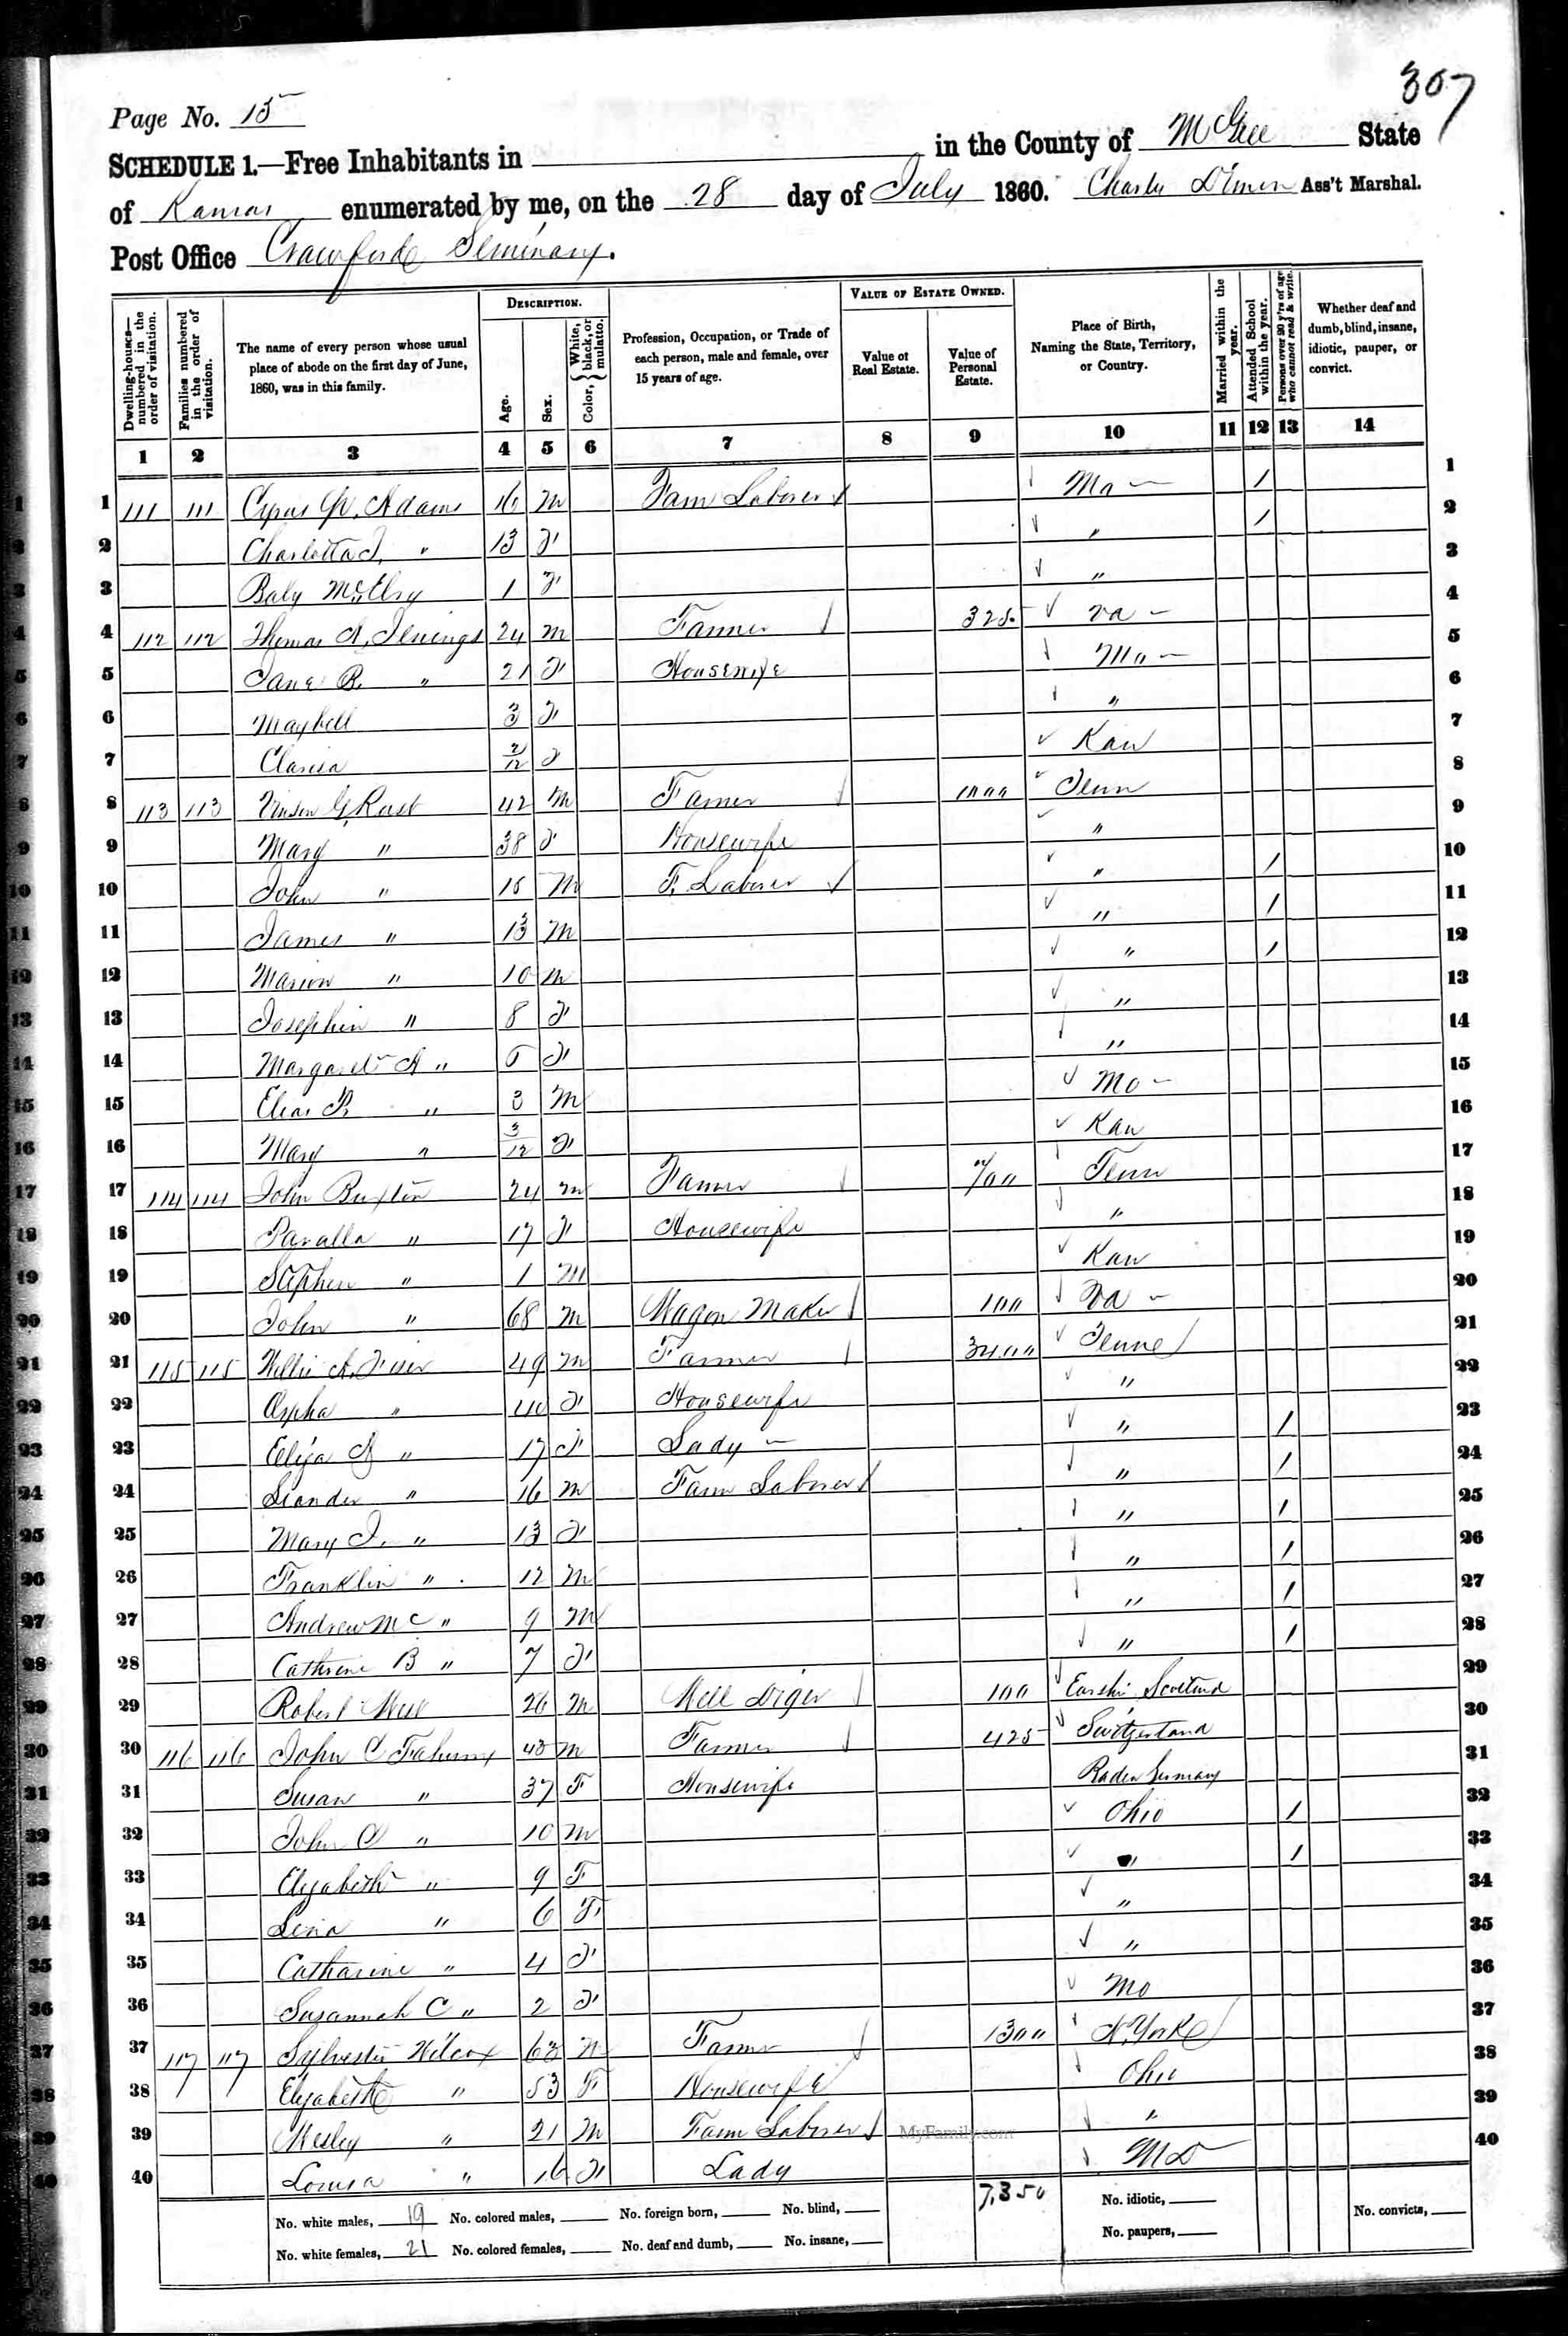 307
Page No. 15
SCHEDULE 1.—Free Inhabitants in in the County of McGee State
of Kansas enumerated by me, on the 28 day of July 1860. Ass't Marshal.
Post Office Crawford Seminary.
Dwelling-houses—numbered in the order of visitation.
Families numbered in the order of visitation.
The name of every person whose usual place of abode on the first day of June, 1860, was in this family.
DESCRIPTION.
Age.
Sex.
Color, { White, black, or mulatto.
Profession, Occupation, or Trade of each person, male and female, over 15 years of age.
VALUE OF ESTATE OWNED.
Value of Real Estate.
Value of Personal Estate.
Place of Birth, Naming the State, Territory, or Country.
Married within the year.
Attended School within the year.
Persons over 20 y'rs of age who cannot read & write.
Whether deaf and dumb, blind, insane, idiotic, pauper, or convict.
1 2 3 4 5 6 7 8 9 10 11 12 13 14
1 111 111 Cyrus W. Adams 16 M Farm Laborer Mo / 1
2 Charlotta J. " 13 F " / 2
3 Baby McElroy 1 F " 3
4 112 112 Thomas A. Jenings 24 M Farmer 325 Va 4
5 Jane B. " 21 F Housewife Mo 5
6 Maybell 3 F " 6
7 Clarisa 2/12 F Kan 7
8 113 113 42 M Farmer 1000 Tenn 8
9 Mary " 38 F Housewife " 9
10 John " 15 M F. Laborer " / 10
11 James " 13 M " / 11
12 Marion " 10 M " / 12
13 Josephin " 8 F " 13
14 Margaret A " 5 F " 14
15 Elias B. " 3 M Mo 15
16 Mary " 3/12 F Kan 16
17 114 114 John Buxton 24 M Farmer 700 Tenn 17
18 Paralla " 17 F Housewife " 18
19 Stephen " 1 M Kan 19
20 John " 68 M Wagon Maker 100 Va 20
21 115 115 Willie A. 49 M Farmer 3400 Tenne 21
22 Orpha " 40 F Housewife " 22
23 Eliza " 17 F Lady " / 23
24 Leander " 16 M Farm Laborer " / 24
25 Mary J. " 13 F " / 25
26 Franklin " 12 M " / 26
27 Andrew Mc " 9 M " / 27
28 Cathrine B " 7 F " / 28
29 Robert 26 M Well Diger 100 Scotland 29
30 116 116 John C 43 M Farmer 425 Switzerland 30
31 Susan " 37 F Housewife Baden Germany 31
32 John C " 10 M Ohio / 32
33 Elizabeth " 9 F " / 33
34 Lena " 6 F " 34
35 Catharine " 4 F " 35
36 Susannah C " 2 F Mo 36
37 117 117 Sylvester Wilcox 63 M Farmer 1300 N. York 37
38 Elizabeth " 53 F Housewife Ohio 38
39 Wesley " 21 M Farm Laborer " 39
40 Louisa " 16 F Lady Mo 40
MyFamily.com
No. white males, 19 No. colored males, No. foreign born, No. blind, 7,350 No. idiotic, No. convicts,
No. white females, 21 No. colored females, No. deaf and dumb, No. insane, No. paupers,